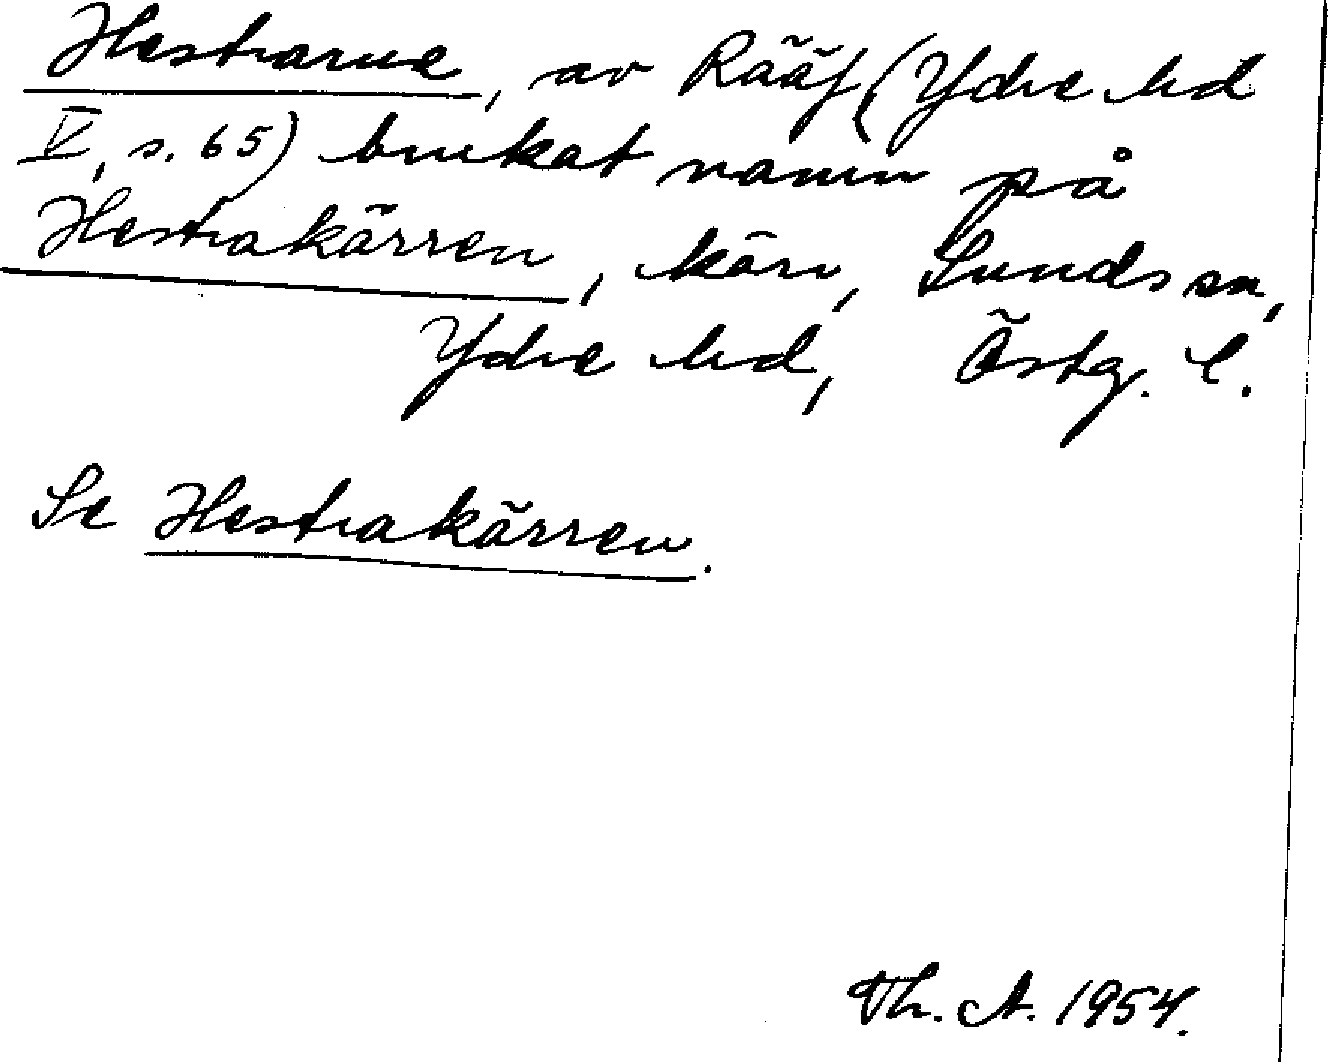 Hestrarne, av Rääf (Ydre hd
V, s. 65) brukat namn på
Hestrakärren, kärr, Sunds sn,
Ydre hd, Östg. l.
Se Hestrakärren.
Th. A. 1954.